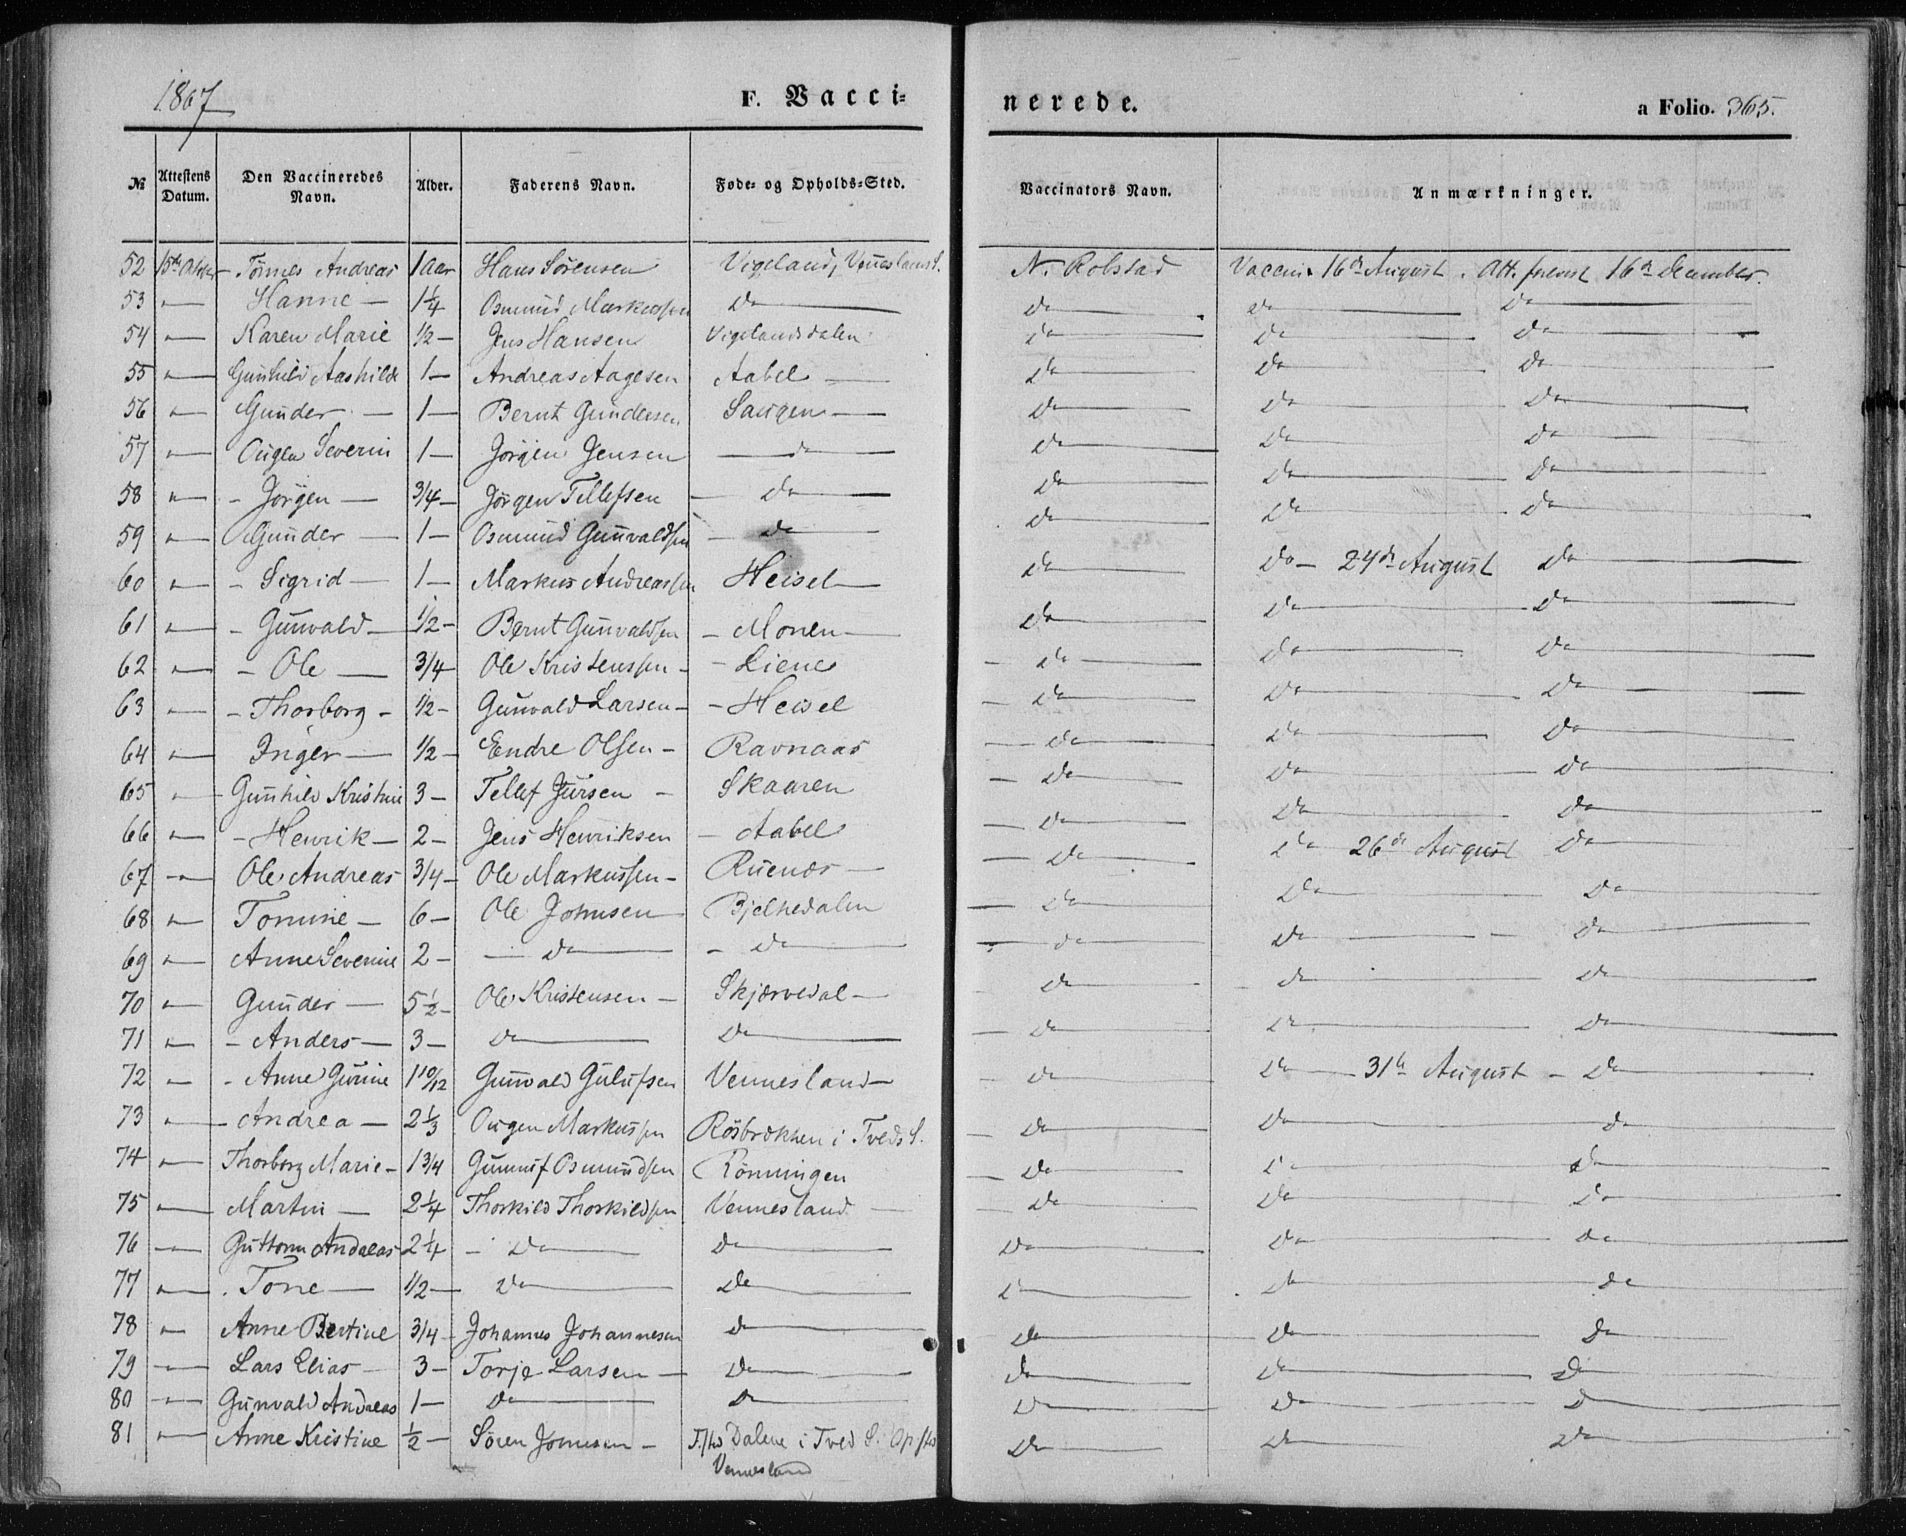 1867
F. Vacci-
nerede.
a Folio. 365.
№ Attestens Datum. Den Vaccineredes Navn. Alder. Faderens Navn. Føde- og Opholds-Sted. Vaccinators Navn. Anmærkninger.
52 15de Oktbr Tönnes Andreas 1 Aar Hans Sörensen Vigeland, Venneslands S. N. Robstad Vaccin. 16de August. Att. fremst 16de December.
53 " Hanne 1 1/4 Osmund Markussen Do Do Do Do
54 " Karen Marie 1/2 Jens Hansen Vigelandsdalen Do Do Do
55 " Gunhild Aashilde 1 Andreas Aagesen Aabel Do Do Do
56 " Gunder 1 Bernt Gundersen Saugen Do Do Do
57 " Ougen Severin 1 Jörgen Jensen do Do Do Do
58 " Jörgen 3/4 Jörgen Tellefsen Do Do Do Do
59 " Gunder 1 Osmund Gunvaldsen Do Do Do Do
60 " Sigrid 1 Markus Andreassen Heisel Do Do 24de August Do
61 " Gunvald 1/2 Bernt Gunvaldsen Monen Do Do Do
62 " Ole 3/4 Ole Kristenssen Liene Do Do Do
63 " Thorborg 1/2 Gunvald Larsen Heisel Do Do Do
64 " Inger 1/2 Endre Olsen Ravnaas Do Do Do
65 " Gunhild Kristine 3 Tellef Jürsen Skaaren Do Do Do
66 " Henrik 2 Jens Henriksen Aabel Do Do Do
67 " Ole Andreas 3/4 Ole Markussen Ruenes Do Do 26de August Do
68 " Tomine 6 Ole Johnsen Bjelkedalen Do Do Do
69 " Anne Severine 2 Do Do Do Do Do
70 " Gunder 5 1/2 Ole Kristensen Skjærvedal Do Do Do
71 " Anders 3 Do Do Do Do Do
72 " Anne Gurine 1 10/12 Gunvald Gulufsen Vennesland Do Do 31te August Do
73 " Andrea 2 1/3 Ougen Markussen Rösbrokken i Tveds S. Do Do Do
74 " Thorborg Marie 1 3/4 Gunnuf Osmundsen Rönningen Do Do Do
75 " Martin 2 1/4 Thorkild Thorkildsen Vennesland Do Do Do
76 " Guttorm Andreas 2 1/4 Do Do Do Do Do
77 " Tone 1/2 Do Do Do Do Do
78 " Anne Bertine 3/4 Johannes Johannesen Do Do Do Do
79 " Lars Elias 3 Torje Larsen Do Do Do Do
80 " Gunvald Andreas 1 Do Do Do Do Do
81 " Anne Kristine 1/2 Sören Jonnsen F.sted Dalene i Tved S. Op.sted Do Do Do
Vennesland